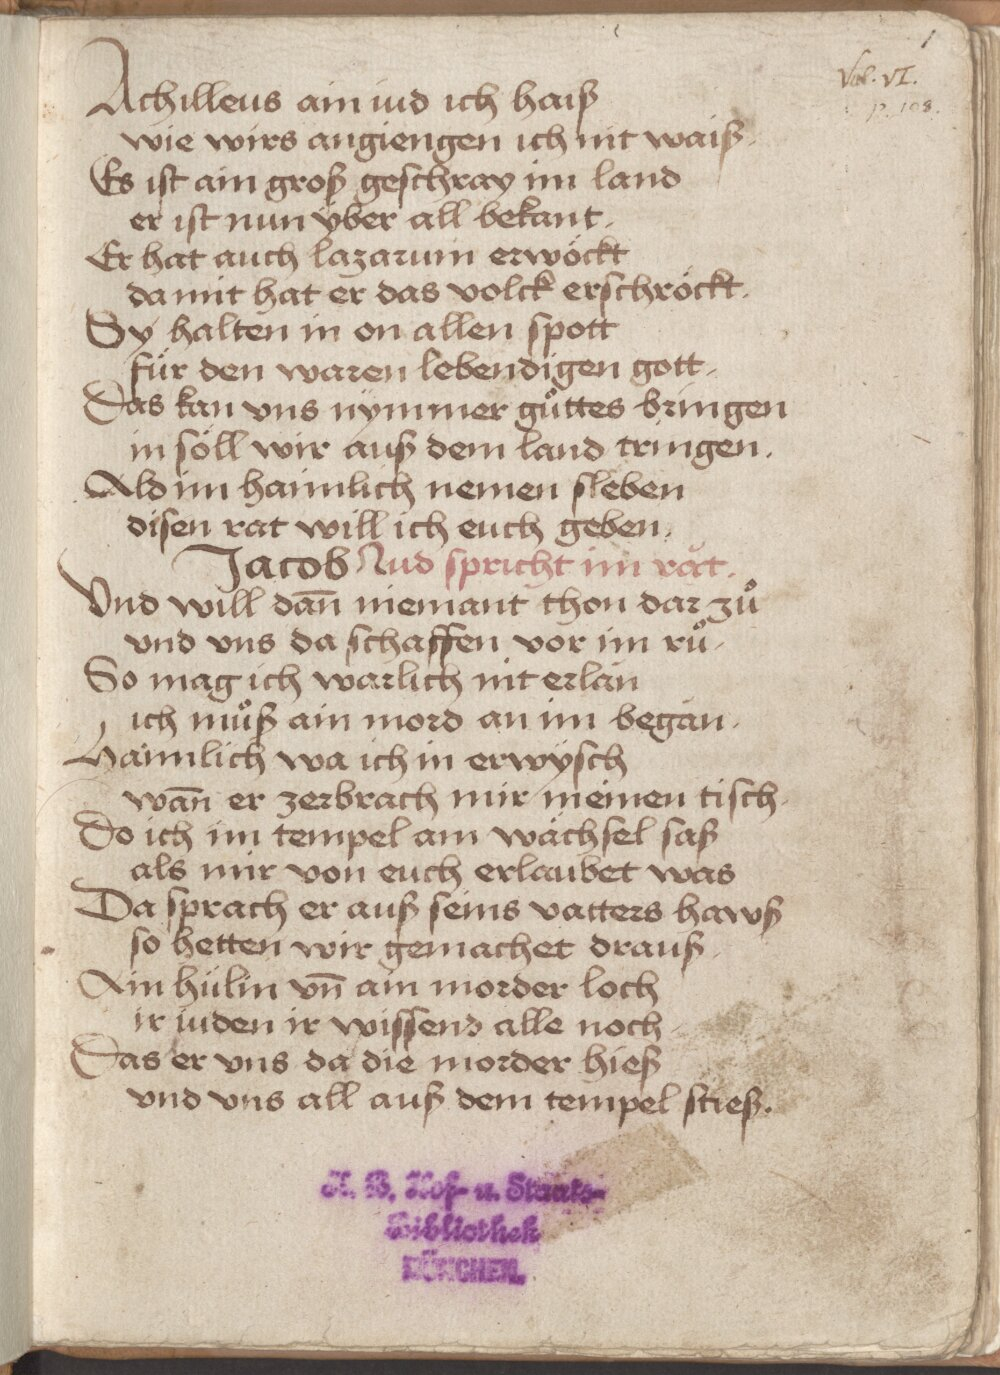 1
Vol. VI.
p. 108.
Achilleus ain iud ich haiß
wie wirs angiengen ich nit waiß.
Es ist ain groß geschray im land
er ist nun ÿber all bekant.
Er hat auch lazarum erwöckt
da mit hat er das volck erschröckt.
Sÿ halten in on allen spott
für den waren lebendigen gott.
Das kan vns nÿmmer gůttes bringen
in söll wir auß dem land tringen.
Ald im haimlich nemen sleben
disen rat will ich euch geben.
Jacob Jud spricht im rǎt.
Vnd will dan̄ niemant thon dar zů
vnd vns da schaffen vor im rů.
So mag ich warlich nit erlän
ich můß ain mord an im begän.
Hämlich wa ich in erwÿsch
wan̄ er zerbrach mir meinen tisch.
Do ich im tempel am wächsel saß
als mir von euch erlaubet was
Da sprach er auß seins vatters hawß
so hetten wir gemachet drauß.
Ain hülin vn̄ ain morder loch
ir iuden ir wissend alle noch.
Das er vns da die morder hieß
vnd vns all auß dem tempel stieß.
K. B. Hof- u. Staats-
Bibliothek
MÜNCHEN.